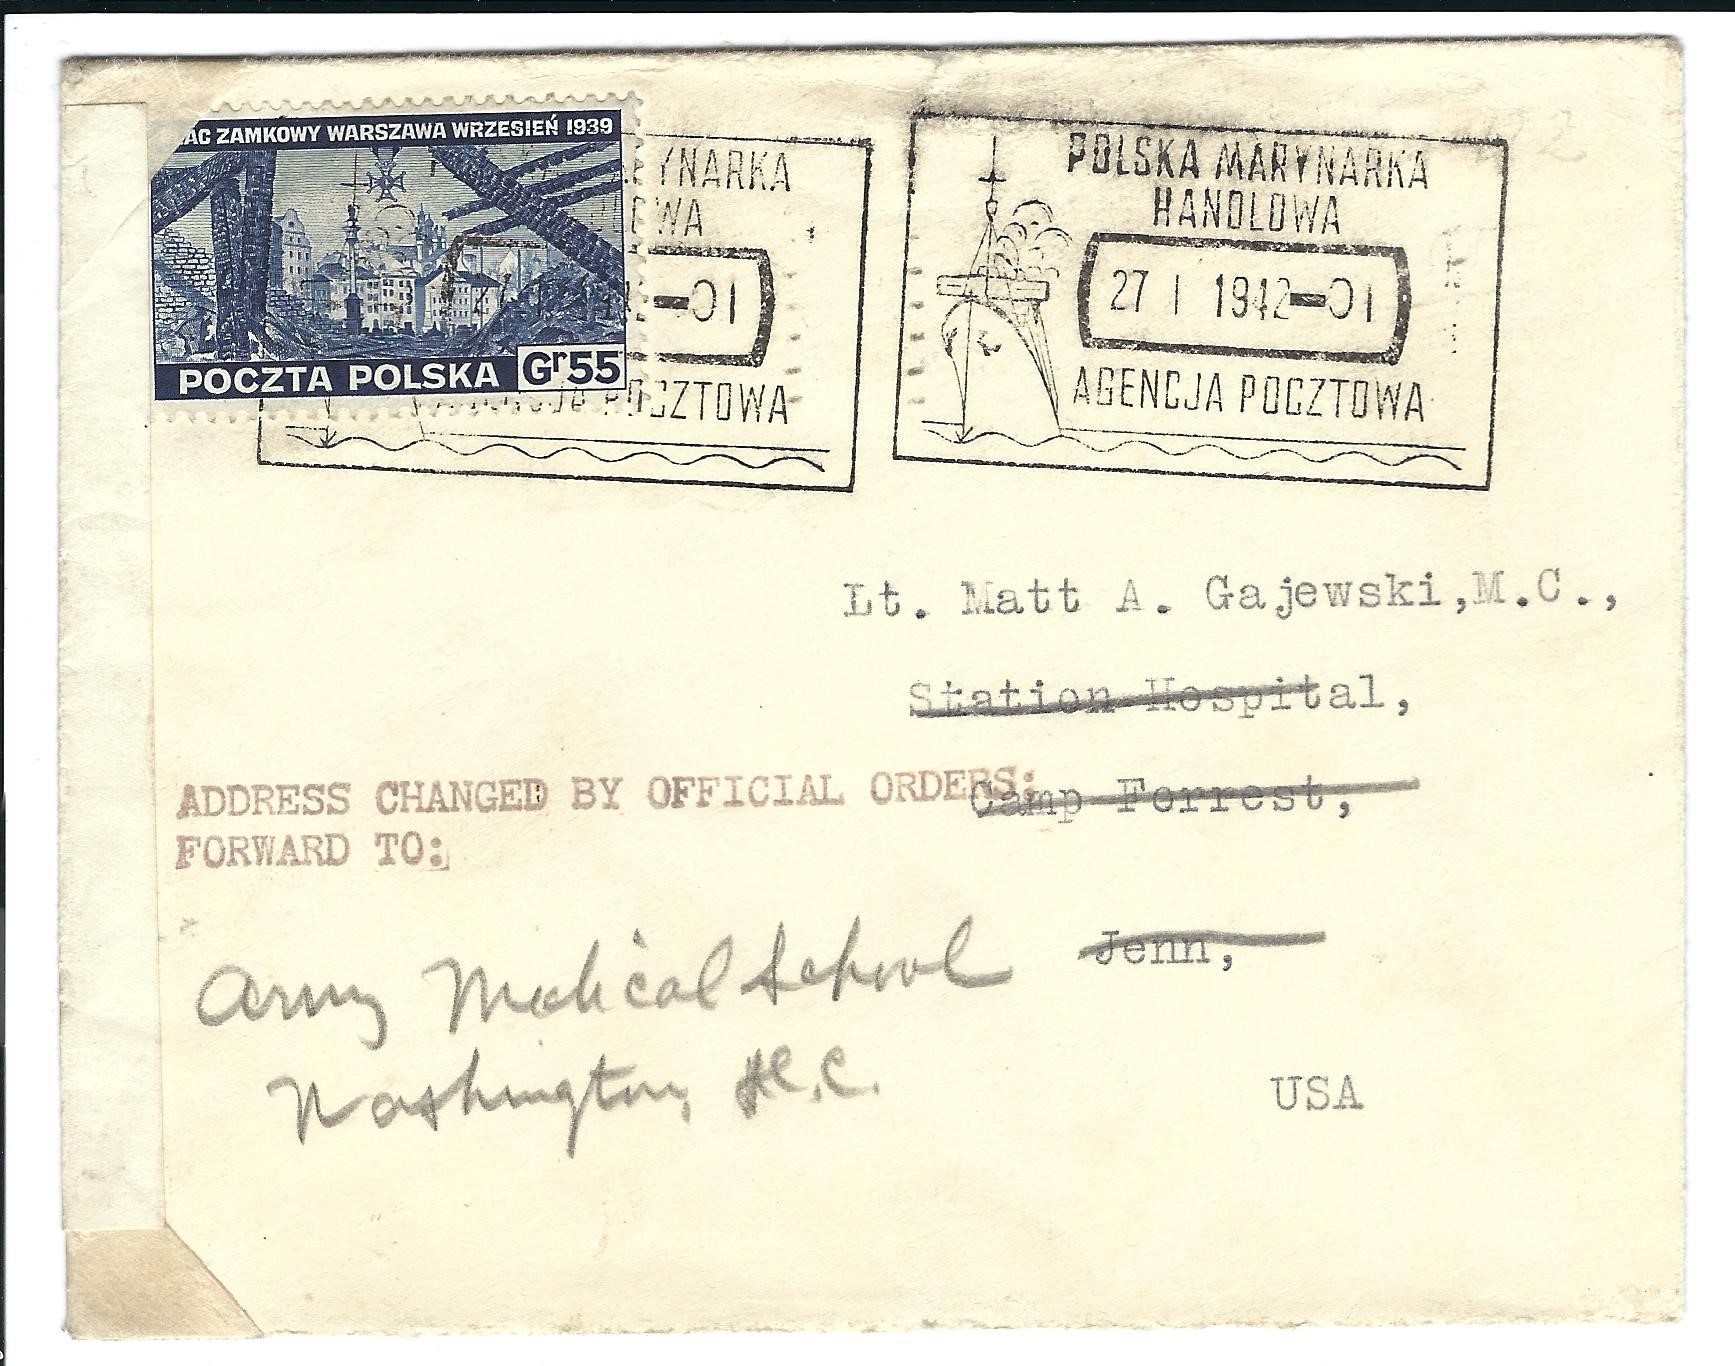 AC ZAMKOWY WARSZAWA WRZESIEŃ 1939
POCZTA POLSKA Gr55
YNARKA
WA
-01
POCZTOWA
POLSKA MARYNARKA
HANDLOWA
27 I 1942-01
AGENCJA POCZTOWA
Lt. Matt A. Gajewski,M.C.,
Station Hospital,
Camp Forrest,
Jenn,
USA
ADDRESS CHANGED BY OFFICIAL ORDERS:
FORWARD TO:
Army Medical School
Washington, D.C.